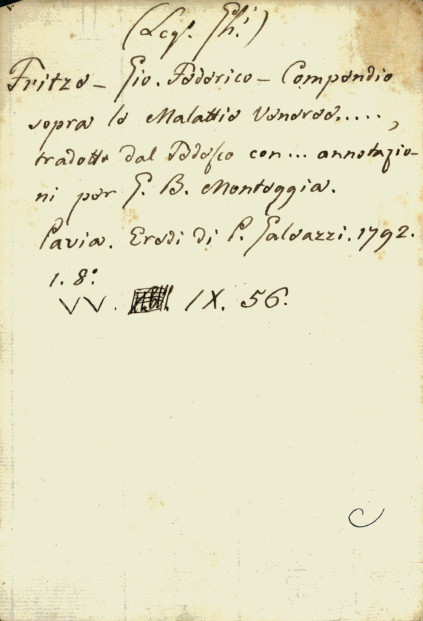 (Legs. Gh.i)
Fritze - Gio. Federico - Compendio
sopra le Malattie Veneree....,
tradotto dal Tedesco con... annotazio-
ni per G. B. Monteggia.
Pavia. Eredi di P. Galeazzi. 1792.
1. 8.°
VV. IX. 56.